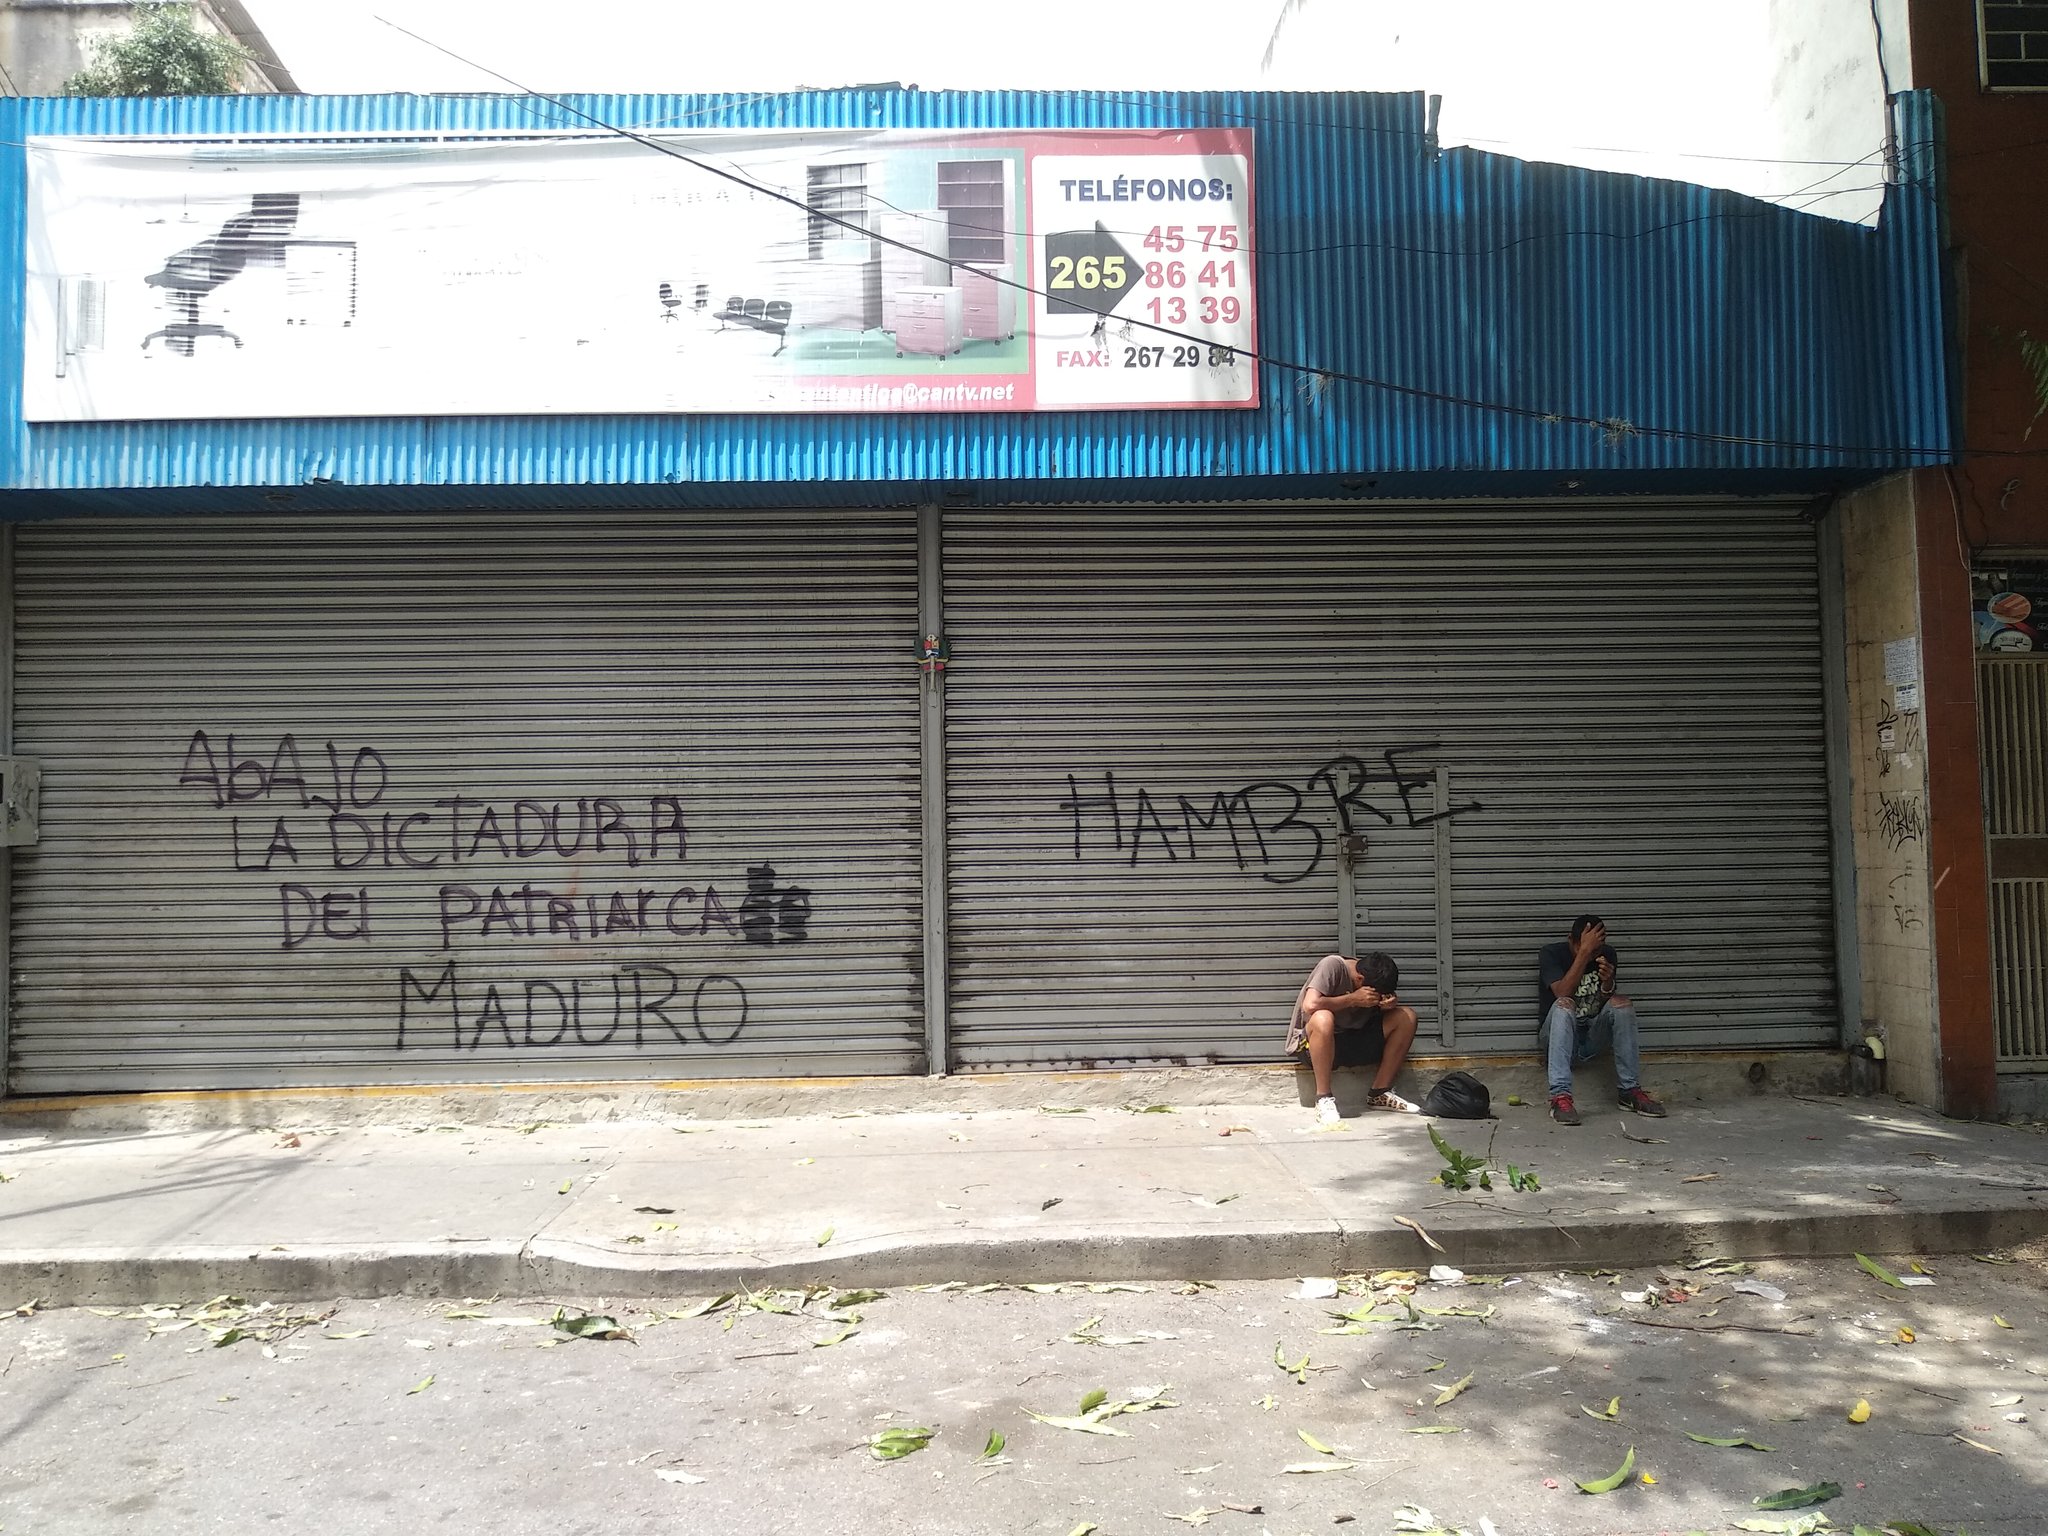 TELÉFONOS:
265
45 75
86 41
13 39
FAX: 267 29 84
@cantv.net
AbAJO
LA DICTADURA
DEl PATRIArCA
MADURO
HAMBRE